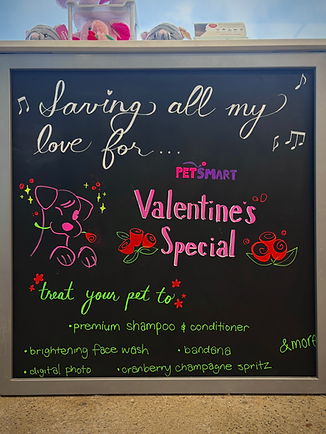 Saving all my
love for...
PETSMART
Valentine's
Special
treat your pet to
• premium shampoo & conditioner
• brightening face wash • bandana
&more
• digital photo • cranberry champagne spritz